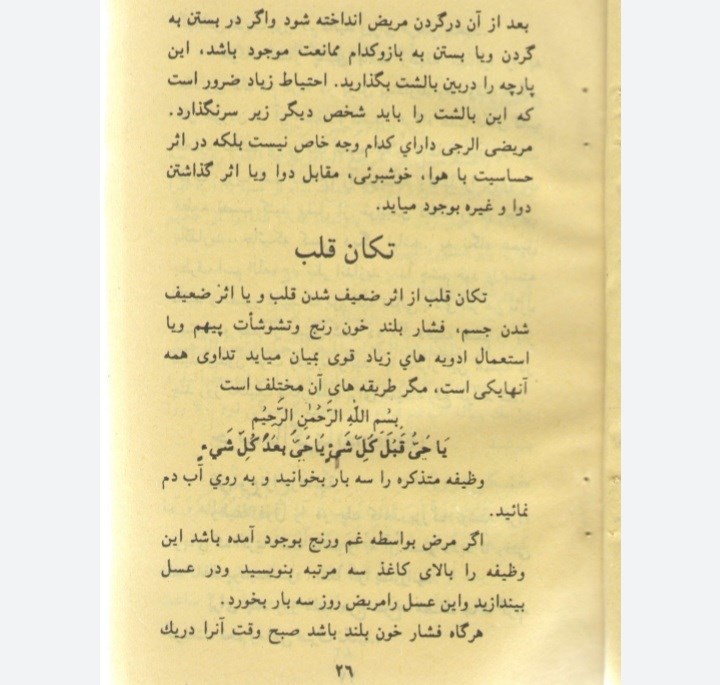 بعد از آن درگردن مریض انداخته شود واگر در بستن به
گردن ویا بستن به بازوکدام ممانعت موجود باشد، این
پارچه را دربین بالشت بگذارید. احتیاط زیاد ضرور است
که این بالشت را باید شخص دیگر زیر سرنگذارد.
مریضی الرجی دارای کدام وجه خاص نیست بلکه در اثر
حساسیت با هوا، خوشبوئی، مقابل دوا ویا اثر گذاشتن
دوا و غیره بوجود میاید.
تکان قلب
تکان قلب از اثر ضعیف شدن قلب و یا اثر ضعیف
شدن جسم، فشار بلند خون رنج وتشوشأت پیهم ویا
استعمال ادویه های زیاد قوی بمیان میاید تداوی همه
آنهایکی است، مگر طریقه های آن مختلف است
بِسْمِ اللّٰهِ الرَّحْمٰنِ الرَّحِیْمِ
یَا حَیُّ قَبْلَ کُلِّ شَیْءٍ یَاحَیُّ بَعْدَ کُلِّ شَیْءٍ
وظیفه متذکره را سه بار بخوانید و به روی آب دم
نمائید.
اگر مرض بواسطه غم ورنج بوجود آمده باشد این
وظیفه را بالای کاغذ سه مرتبه بنویسید ودر عسل
بیندازید واین عسل رامریض روز سه بار بخورد.
هرگاه فشار خون بلند باشد صبح وقت آنرا دریك
۲٦